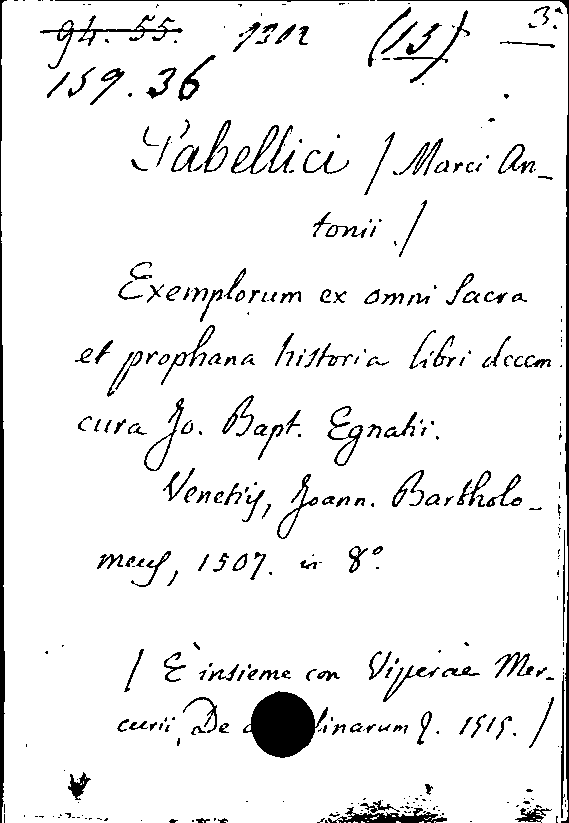 94. 55. 1302 (15) 3.
159.36
Sabellici / Marci An-
tonii. /
Exemplorum ex omni Sacra
et prophana historia libri decem
cura Jo. Bapt. Egnatii.
Venetijs, Joann. Bartholo-
meus, 1507. in 8°.
/ È insieme con Viperae Mer-
curii, De linarum 1515. /